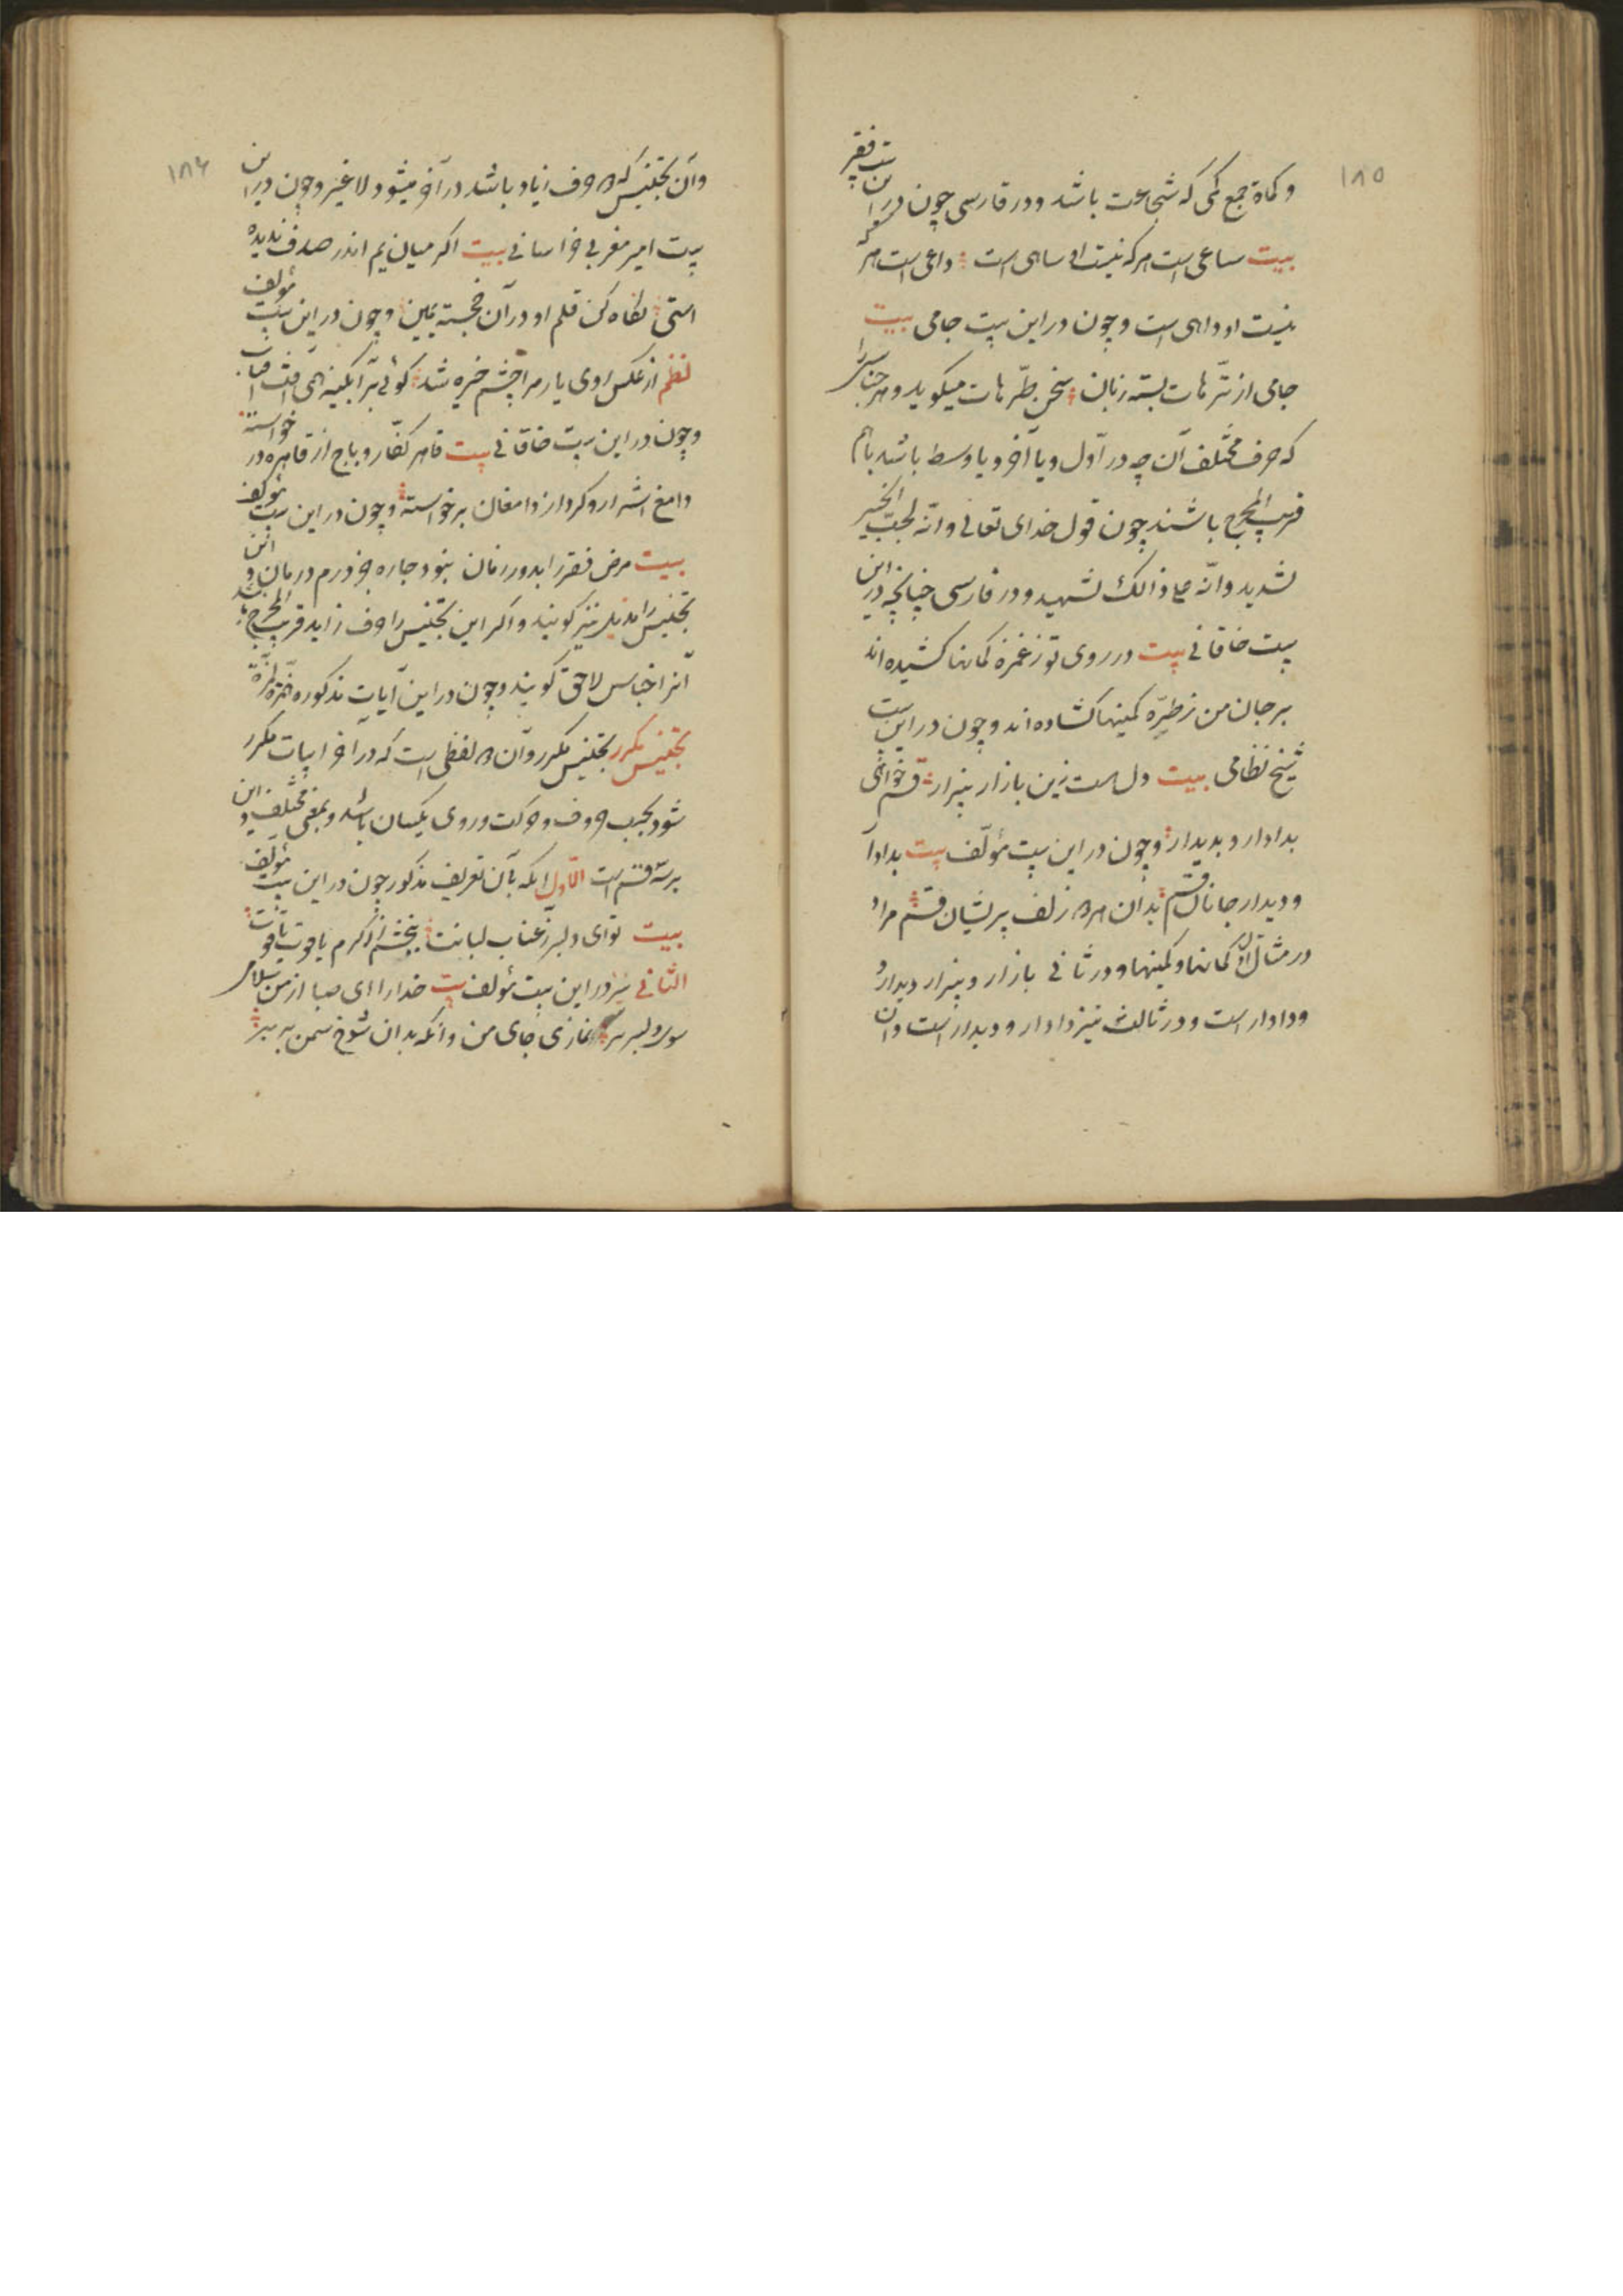 ۱۸۵
و کماة جمع کمی که شجاعت باشد و در فارسی چون در این بیت فقیر
بیت ساعی است هر که نیست او ساهی است داعی است هر که
نیست او داهی است و چون در این بیت جامی بیت
جامی از ترّهات بسته زبان سخن طرّهات میکوید و هر جناسیرا
که حرف مختلف آن چه در اوّل و یا آخر و یا وسط باشد باهم
قریب المخرج باشند چون قول خدای تعالی و انّه لحبّ الخیر
لشدید و انّه علی ذالک لشهید و در فارسی چنانچه در این
بیت خاقانی بیت در روی تو ز غمزه کمانها کشیده اند
بر جان من ز طرّه کمینها کشاده اند و چون در این بیت
شیخ نظامی بیت دل است زین بازار بیزار قسم خواهی
بدادار و بدیدار و چون در این بیت مؤلّف بیت بدادار
و دیدار جانان قسم بدان زلف پریشان قسم مراد
در مثال اوّل کمانها و کمینها و در ثانی بازار و بیزار و دیدار
و دادار است و در ثالث نیز دادار و دیدار است و ان
۱۸۶
و آن تجنیس که حروف زیاد باشد در آخر میشود لا غیر و چون در این
بیت امیر مغربی خراسانی بیت اکر میان یم اندر صدف ندیده
استی نکاه کن قلم او در آن خجسته یمین و چون در این بیت مؤلف
نظم از عکس روی یار مرا چشم خیره شد کوئی بر آبکینه همی آفتاب
و چون در این بیت خاقانی بیت قاهر کفّار و باج از قاهره در خواسته
دامغ اشرار و کرد از دامغان برخواسته و چون در این بیت مؤلف
بیت مرض فقر را بدور زمان نبود چاره جز درم درمان و این
تجنیس را مذیل نیز کویند و اکر این تجنیس را حروف زاید قریب المخرج باشند
آنرا جناس لاحق کویند و چون در این آیات مذکوره
تجنیس مکرر تجنیس مکرر و آن لفظی است که در آخر ابیات مکرر
شود بحسب حروف و حرکت و روی یکسان باشد و بمعنی مختلف و این
بر سه قسم است الاوّل آنکه بآن تعریف مذکور چون در این بیت مؤلف
بیت توای دلبر ز عناب لبانت ببخشم از کرم یاقوت یاقوت
الثانی نیز در این بیت مؤلف بیت خدارا ای صبا از من سلام
سوی دلبر نمازی جای من وانکه بدان شوخ سمن بر بر